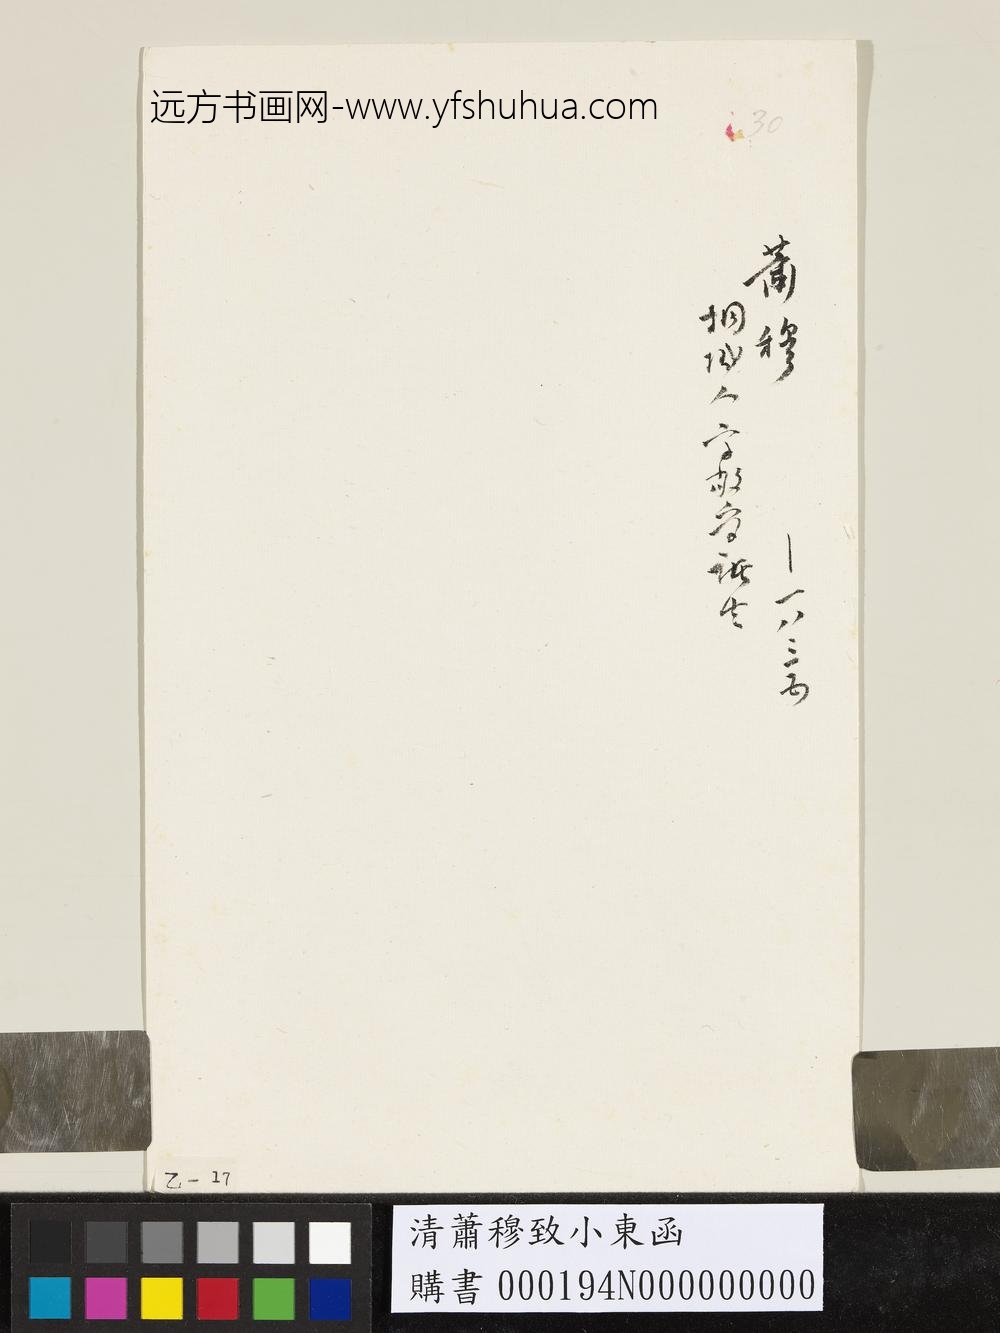 远方书画网-www.yfshuhua.com
30
蕭穆
桐城人字敬孚諸生
乙-17
清蕭穆致小東函
購書 000194N000000000